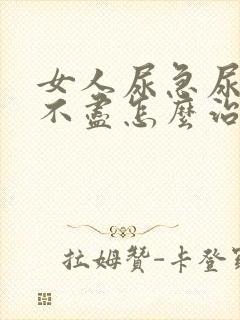 女人尿急尿
不盡怎麼治
拉姆贊-卡登